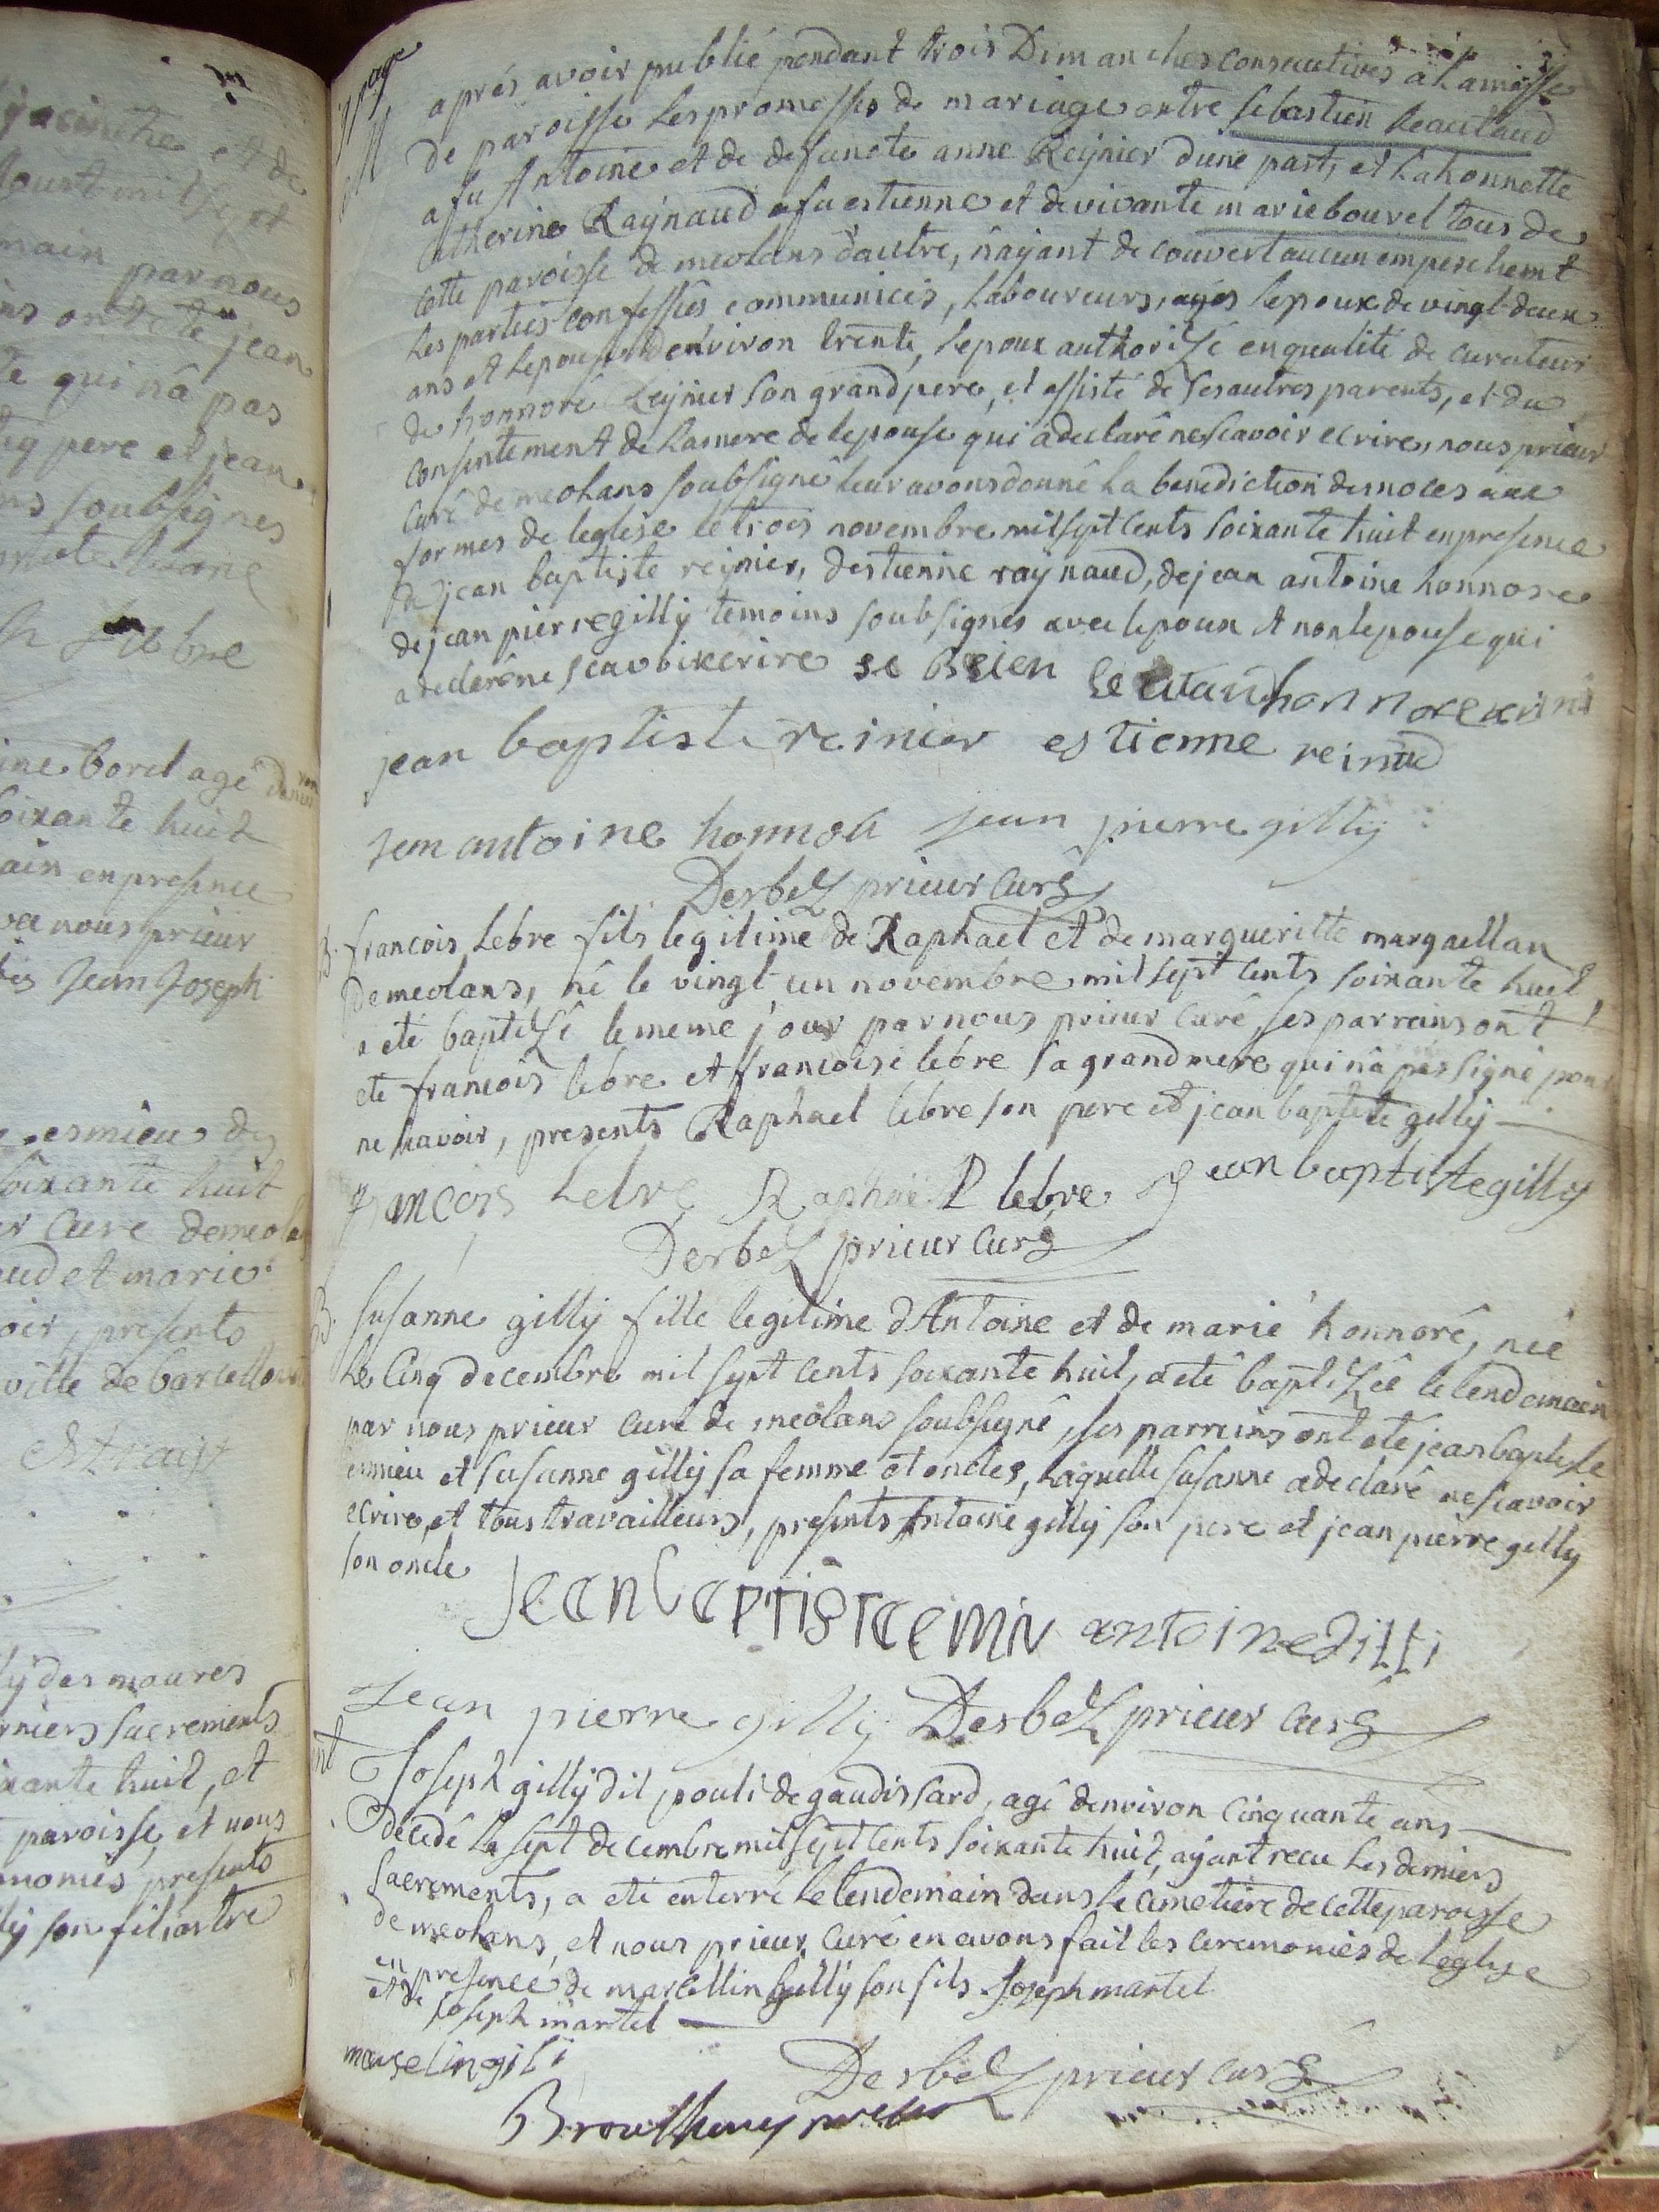 jacinthe et de
main par nous
ont eté jean
te qui n'a pas
pere et jean
soubsignes
lebre
borel agé
soixante huit
ain en presence
nous prieur
Jean Joseph
esmieu
soixante huit
curé de meola
et marie
presents
ville de barcellon
des maures
sacrements
xante huit, et
paroisse, et nous
presents
son filiastre
7 page
M
aprés avoir publié pendant trois Dimanches consecutives a la messe
de paroisse les promesses de mariage entre sebastien leautaud
a fu Antoine et de defuncte anne Reynier dune part, et l'ahonnette
Catherine Raynaud a fu estienne et de vivante marie bourel tous de
cette paroisse de meolans dautre, n'ayant decouvert aucun empeschemt
les parties confessées communiées, laboureurs, agés lepoux de vingt deux
ans et lepouse denviron trente, lepoux authorizé en qualité de curateur
de honnoré Reynier son grand pere, et assisté de ses autres parents, et du
consentement de la mere de lepouse qui a declaré ne scavoir ecrire, nous prieur
curé de meolans soubsigné leur avons donné la benediction des noces aux
formes de leglise le trois novembre mil sept cents soixante huit en presence
de jean baptiste reynier, destienne raynaud, de jean antoine honnore
de jean pierre gilly temoins soubsignés avec lepoux et non lepouse qui
a declaré ne scavoir ecrire se bstien leautaud honnore
jean baptiste reinier estienne reinaud
jean antoine honnoré jean pierre gilly
Derbez prieur curé
B. francois Lebre fils legitime de Raphael et de margueritte margaillan
de meolans, né le vingt un novembre mil sept cents soixante huit,
a eté baptizé le meme jour par nous prieur curé, ses parreins ont
eté francois lebre et francoise lebre sa grand mere qui n'a pas signé pour
ne scavoir, presents Raphael lebre son pere et jean baptiste gilly
francois Lebre Raphael lebre Jean baptiste gilly
Derbez prieur curé
B. susanne gilly fille legitime d'Antoine et de marie honnoré, née
le cinq decembre mil sept cents soixante huit, a eté baptizée le lendemain
par nous prieur curé de meolans soubsigné, ses parreins ont eté jean baptiste
esmieu et susanne gilly sa femme et oncles, laquelle susanne a declaré ne scavoir
ecrire, et tous travailleurs, presents Antoine gilly son pere et jean pierre gilly
son oncle
Jean baptiste emiu antoine gilli
jean pierre gilly Derbez prieur curé
mt
Joseph gilly dit pouli de gaudissard, agé denviron cinquante ans
decedé le sept decembre mil sept cents soixante huit, ayant recu les derniers
sacrements, a eté enterré le lendemain dans le cimetiere de cette paroisse
de meolans, et nous prieur curé en avons fait les ceremonies de leglise
en presence de marcellin gilly son fils Joseph martel
et de joseph martel
marselin gili
Derbez prieur curé